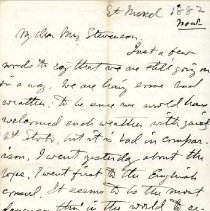 St Marcel 1882
Nov.
My dear Mrs Stevenson,
Just a few
words to say that we are still going on
in a way. We are having some such
weather: to be sure we would have
welcomed such weather with
at Stobo, but it is bad in compar-
ison, I went yesterday about the
I went first to the English
consul. It seems to be the most
thing in the world to